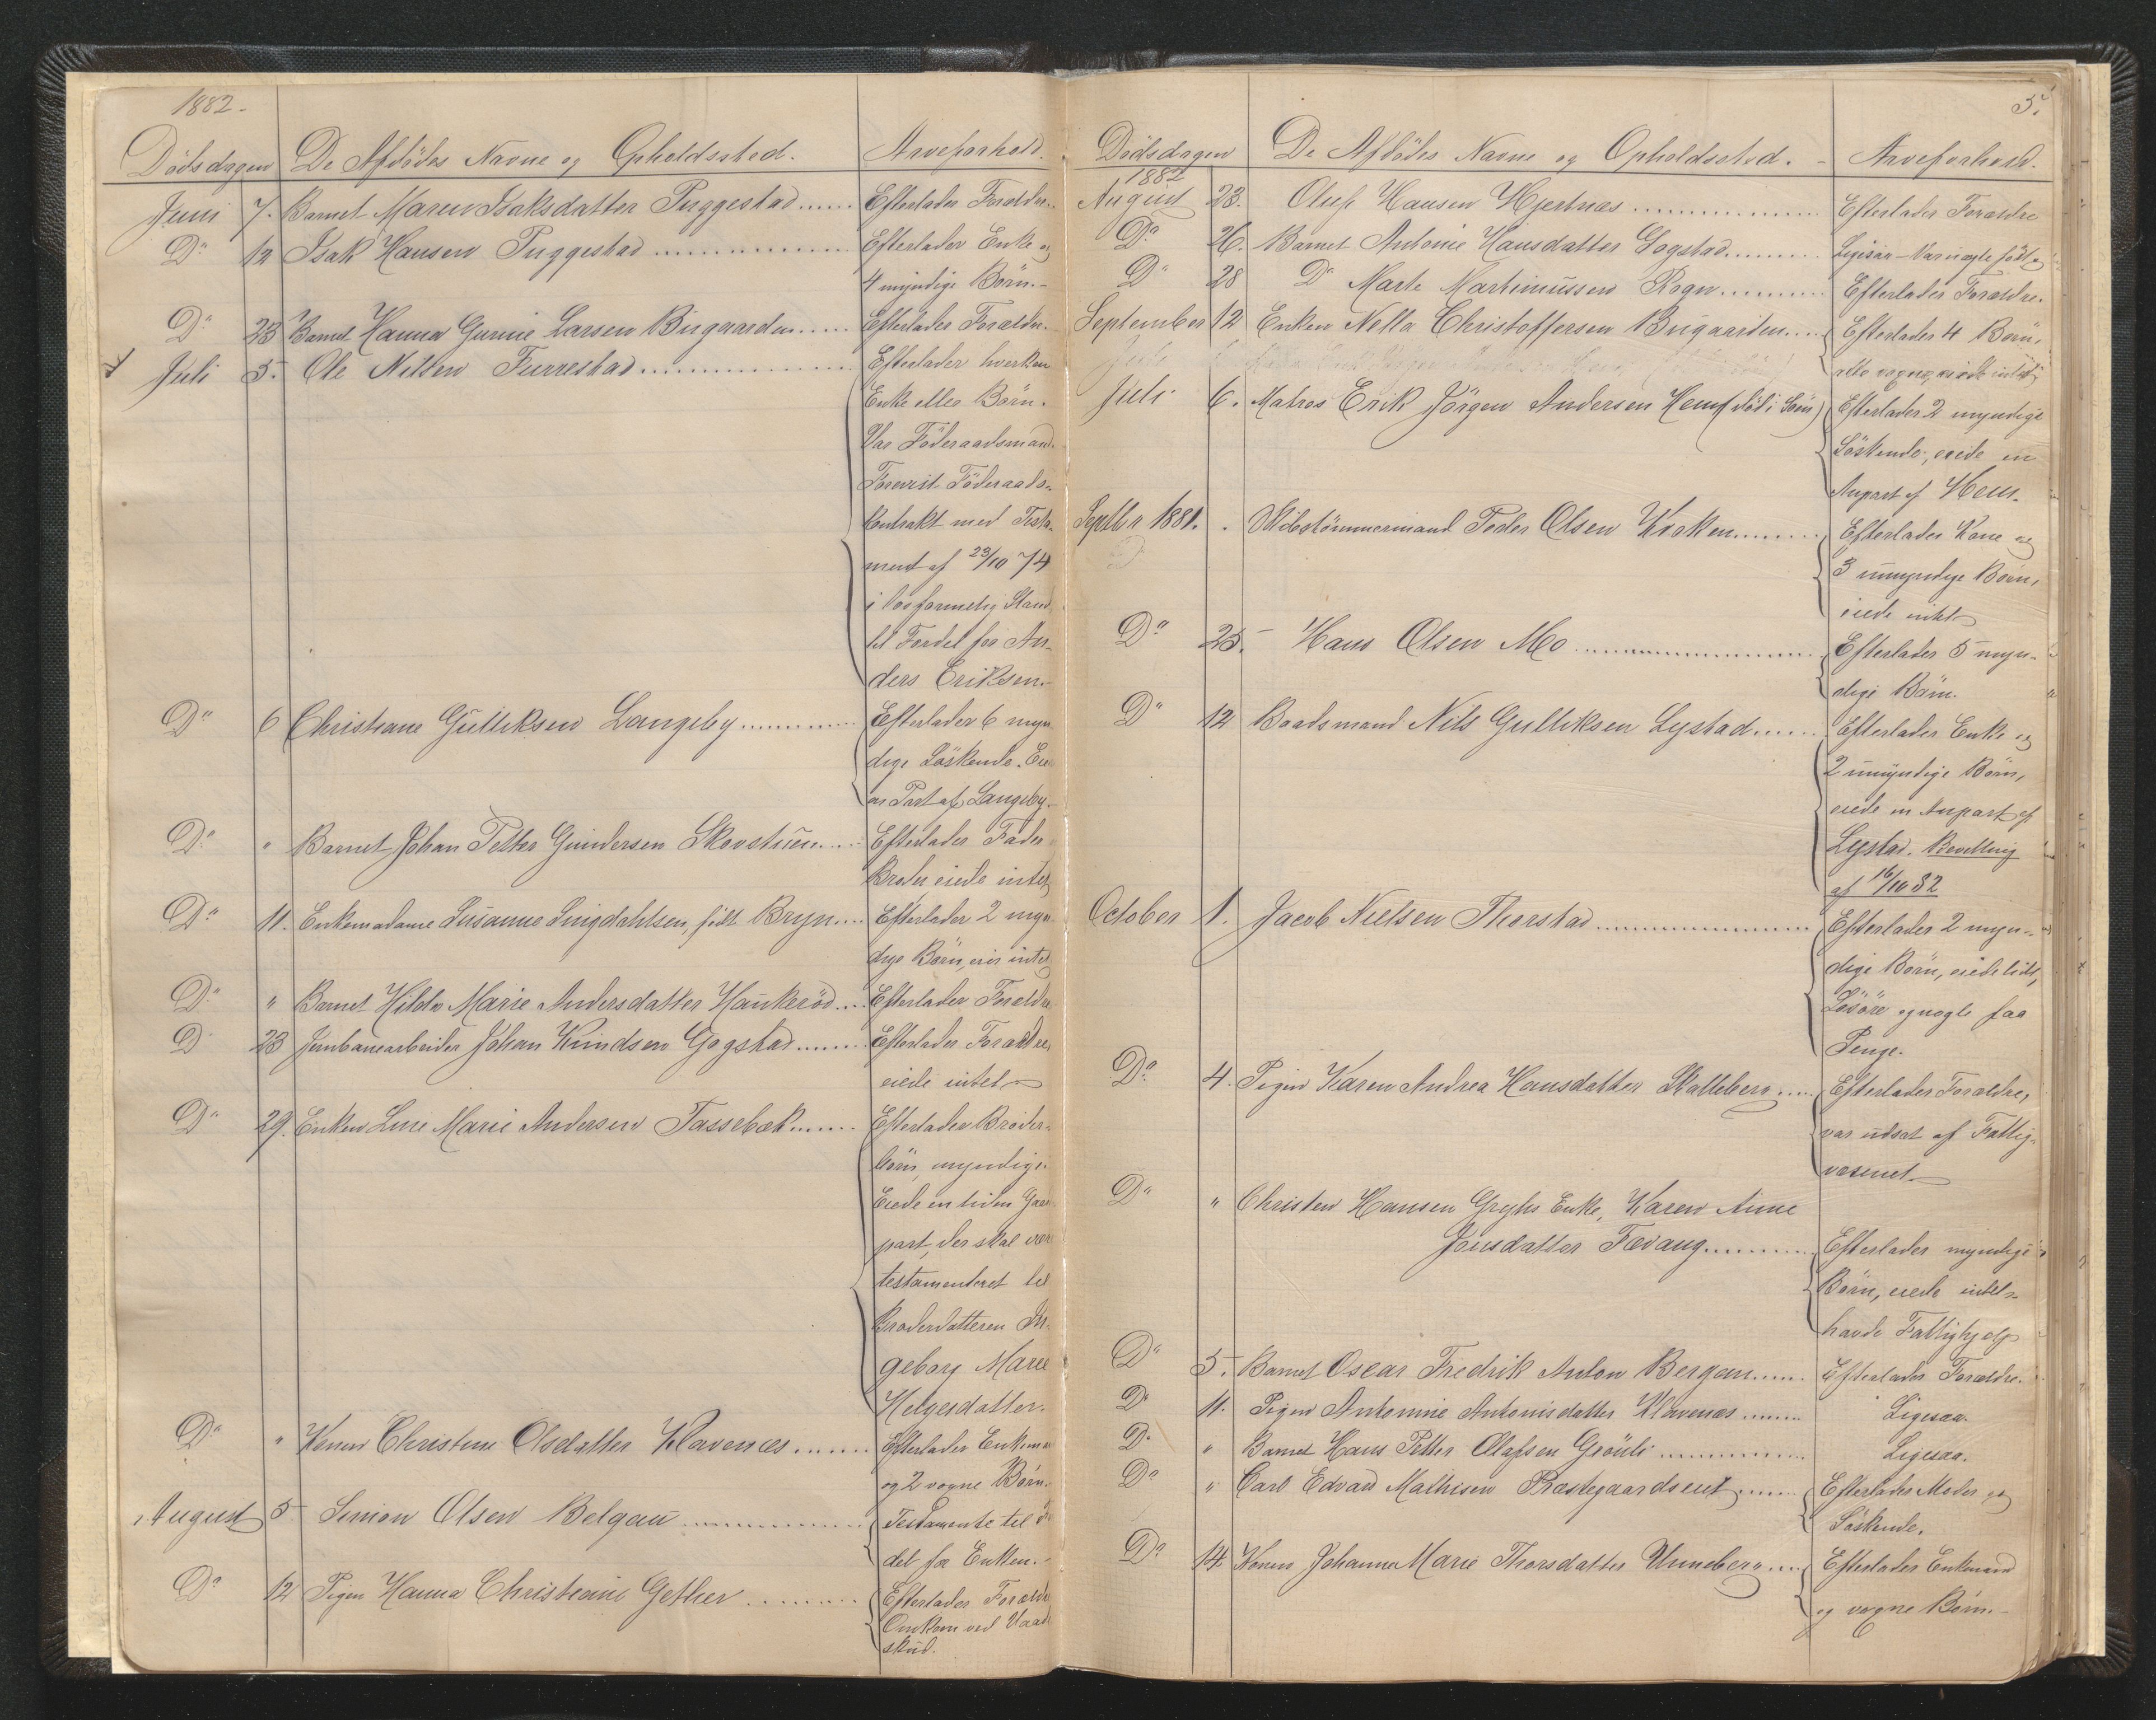 1882.
Dødsdagen De Afdødes Navne og Opholdssted. Arveforhold.
Juni 7. Barnet Maren Isaksdatter Puggestad...... Efterlader Forældre.
Do 12 Isak Hansen Puggestad ............... Efterlader Enke og
4 myndige Børn.-
Do 23 Barnet Hanna Gurine Larsen Bugaarden..... Efterlader Forældre.
Juli 5. Ole Nilsen Furrestad............... Efterlader hverken
Enke eller Børn.
Var Föderaadsmand.
Forevist Föderaads-
kontrakt med Testa-
ment af 23/10 74
i lovformelig Stand
til Fordel for An-
ders Eriksen.-
Do 6 Christiane Gulliksen Langeby.......... Efterlader 6 myn
dige Söskende. Eier
en Part af Langeby.
Do " Barnet Johan Petter Gundersen Skovstuen.... Efterlader Fader
Broder, eiede intet
Do 11. Enkemadame Susanne Lingdahlsen, født Bryn... Efterlader 2 myn-
dige Börn, eier intet
Do " Barnet Hilda Marie Andersdatter Haukeröd... Efterlader Forældre
Do 23 Jernbanearbeider Johan Knudsen Gogstad...... Efterlader Forældre,
eiede intet
Do 29. Enken Line Marie Andersen Tassebæk...... Efterlader Broder-
börn, myndige.
Eiede en liden Gaar
part, der skal være
testamenteret til
Broderdatteren In-
geborg Marie
Helgesdatter.
Do " Konen Christine Olsdatter Klavenæs....... Efterlader Enkeman
og 2 vogne Börn.
August 5 Simon Olsen Belgau............... Testamente til
del for Enken.-
Do 12 Pigen Hanna Christiane Gether ......... Efterlader Forældre
Omkom ved Vaade
skud.
5.
Dødsdagen De Afdødes Navne og Opholdssted. - Arveforhold.
1882
August 23. Oluf Hansen Hjertnæs ............... Efterlader Forældre
Do 26. Barnet Antonie Hansdatter Gogstad......... Ligesaa - Var uægte født
Do 28 Do Marte Martinussen Rogn.......... Efterlader Forældre.
September 12 Enken Nella Christoffersen Bugaarden.... Efterlader 4 Børn,
alle vogne, eiede intet
Juli 6. Matros Erik Jörgen Andersen Hem (död i Söen) Efterlader 2 myndige
Söskende, eiede en
Anpart af Hem.
Septbr 1881. . Skibstömmermand Peder Olsen Kroken....... Efterlader Kone og
3 umyndige Börn,
eiede intet
Do 25. Hans Olsen Mo............... Efterlader 5 myn-
dige Börn.
Do 12 Baadsmand Nils Gulliksen Lystad...... Efterlader Enke og
2 umyndige Börn,
eiede en Anpart af
Lystad. Bevilling
af 16/10 82
October 1. Jacob Nielsen Thorstad............... Efterlader 2 myn-
dige Börn, eiede lidt
Lösöre og nogle faa
Penge.
Do 4. Pigen Karen Andrea Hansdatter Skalleberg..... Efterlader Forældre,
var udsat af Fattig-
væsenet
Do " Christen Hansen Gryhs Enke, Karen Anne
Jensdatter Tævang.......... Efterlader myndige
Börn, eiede intet
havde Fattighjelp
Do 5. Barnet Oscar Fredrik Anton Bergan..... Efterlader Forældre.
Do 11. Pigen Antonine Antonisdatter Klavenæs ....... Ligesaa.
Do " Barnet Hans Petter Olafsen Gröuli ............. Ligesaa.
Do " Carl Edvard Mathisen Præstegaardseiet....... Efterlader Moder og
Söskende.
Do 14. Konen Johanne Marie Thorsdatter Unneberg.... Efterlader Enkemand
og vogne Börn.-